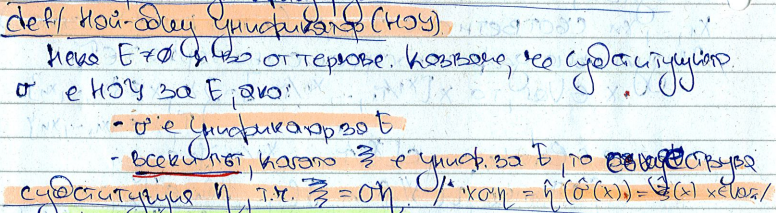 def/ Най-общ унификатор (НОУ).
Нека E≠∅ мн-во от термове. Казваме, че субституцията
σ е НОУ за E, ако:
- σ е унификатор за E
- всеки път, когато ξ е униф. за E, то съществува
субституция η, т.ч. ξ = ση. /* xση = η̂(σ̂(x)) = ξ̂(x)